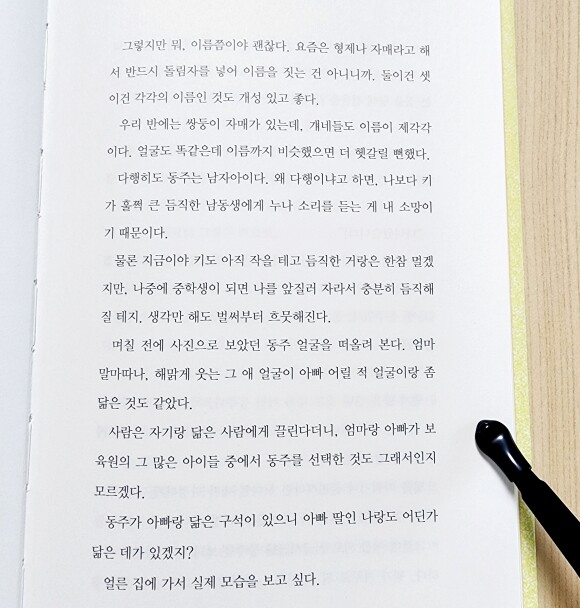 그렇지만 뭐, 이름쯤이야 괜찮다. 요즘은 형제나 자매라고 해
서 반드시 돌림자를 넣어 이름을 짓는 건 아니니까. 둘이건 셋
이건 각각의 이름인 것도 개성 있고 좋다.
우리 반에는 쌍둥이 자매가 있는데, 걔네들도 이름이 제각각
이다. 얼굴도 똑같은데 이름까지 비슷했으면 더 헷갈릴 뻔했다.
다행히도 동주는 남자아이다. 왜 다행이냐고 하면, 나보다 키
가 훌쩍 큰 듬직한 남동생에게 누나 소리를 듣는 게 내 소망이
기 때문이다.
물론 지금이야 키도 아직 작을 테고 듬직한 거랑은 한참 멀겠
지만, 나중에 중학생이 되면 나를 앞질러 자라서 충분히 듬직해
질 테지. 생각만 해도 벌써부터 흐뭇해진다.
며칠 전에 사진으로 보았던 동주 얼굴을 떠올려 본다. 엄마
말마따나, 해맑게 웃는 그 애 얼굴이 아빠 어릴 적 얼굴이랑 좀
닮은 것도 같았다.
사람은 자기랑 닮은 사람에게 끌린다더니, 엄마랑 아빠가 보
육원의 그 많은 아이들 중에서 동주를 선택한 것도 그래서인지
모르겠다.
동주가 아빠랑 닮은 구석이 있으니 아빠 딸인 나랑도 어딘가
닮은 데가 있겠지?
얼른 집에 가서 실제 모습을 보고 싶다.